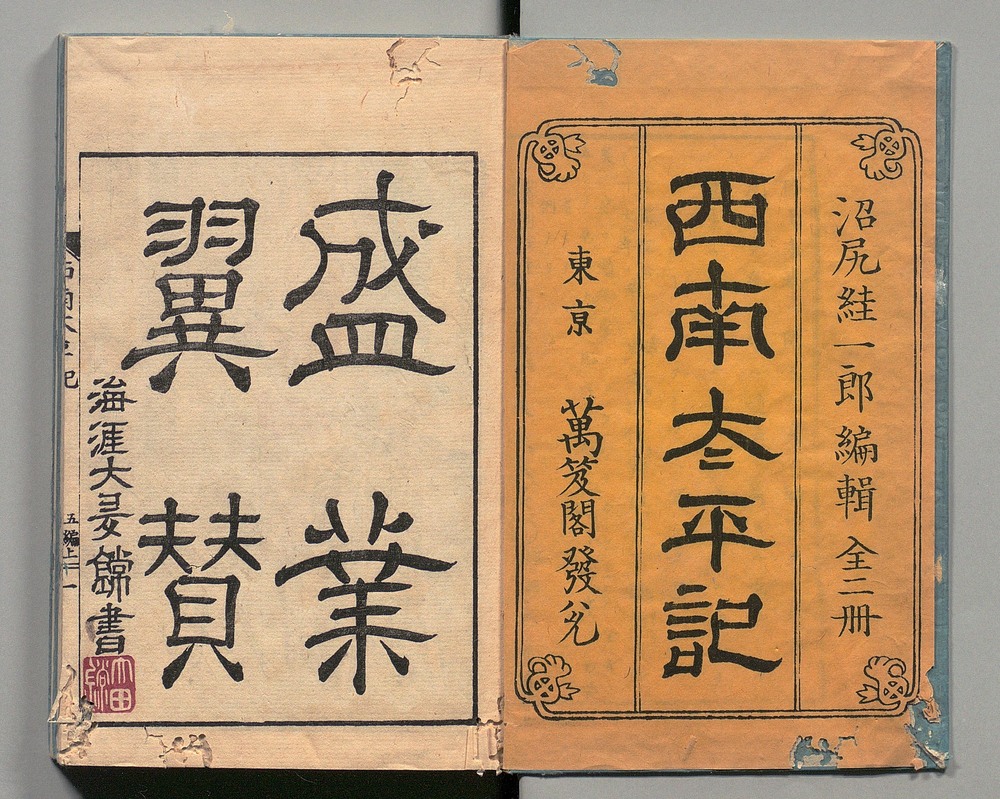 沼尻絓一郎編輯 全二冊
西南太平記
東京 萬笈閣發兌
盛業
翼賛
五編上 一